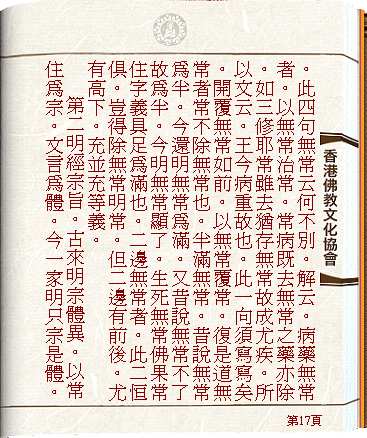 。此四句無常云何不別。解云。病藥無常
者。以無常治常。常病既去無常之藥亦除
。如三修耶常雖去猶存無常故成尤疾。所
以文云。王今病重故也。此一向須寫寫矣
。開覆無常如前。以無常覆常。復是道無
常者常不除無常也。半滿無常。昔說無常
爲半。今還明無常爲滿。又昔說無常不了
故爲半。今明無常顯了。生死無常佛果常
住字義具足爲滿也。二邊無常者。此二恒
俱。豈得除無常明常。但二邊有前後。尤
有高下。充並充等義。
第二明經宗旨。古來明宗體異。以常
住爲宗。文言爲體。今一家明只宗是體。
香港佛教文化協會
第17頁